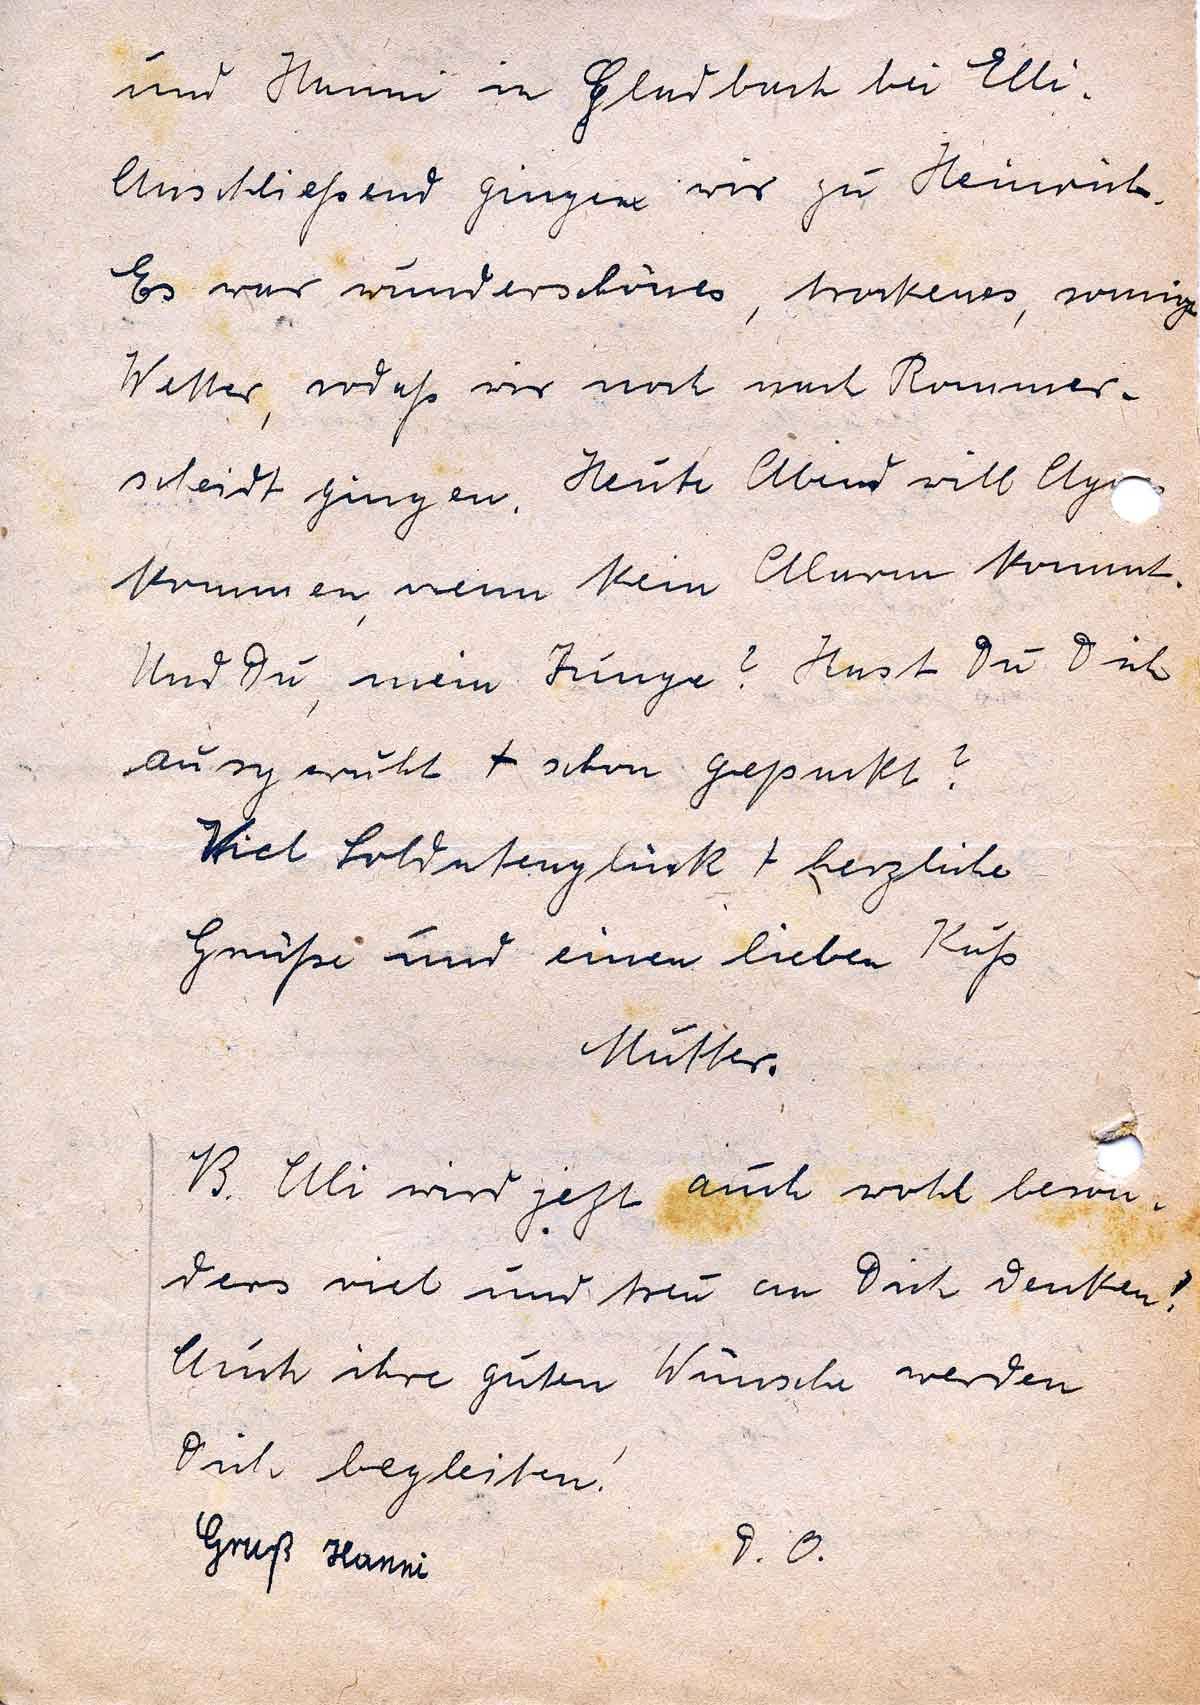 und Hanni in Gladbach bei Elli.
Anschließend gingen wir zu Heinrich.
Es war wunderschönes, trockenes, sonnige
Wetter, sodaß wir noch nach Rommer-
scheidt gingen. Heute Abend will
kommen, wenn kein Alarm kommt.
Und Du, mein Junge? Hast Du Dich
ausgeruht + schon gepackt?
Viel Soldatenglück + herzliche
Grüße und einen lieben Kuß
Mutter.
B. Alli wird jetzt auch wohl beson-
ders viel und treu an Dich denken!
Auch ihre guten Wünsche werden
Dich begleiten!
Gruß Hanni
D. O.